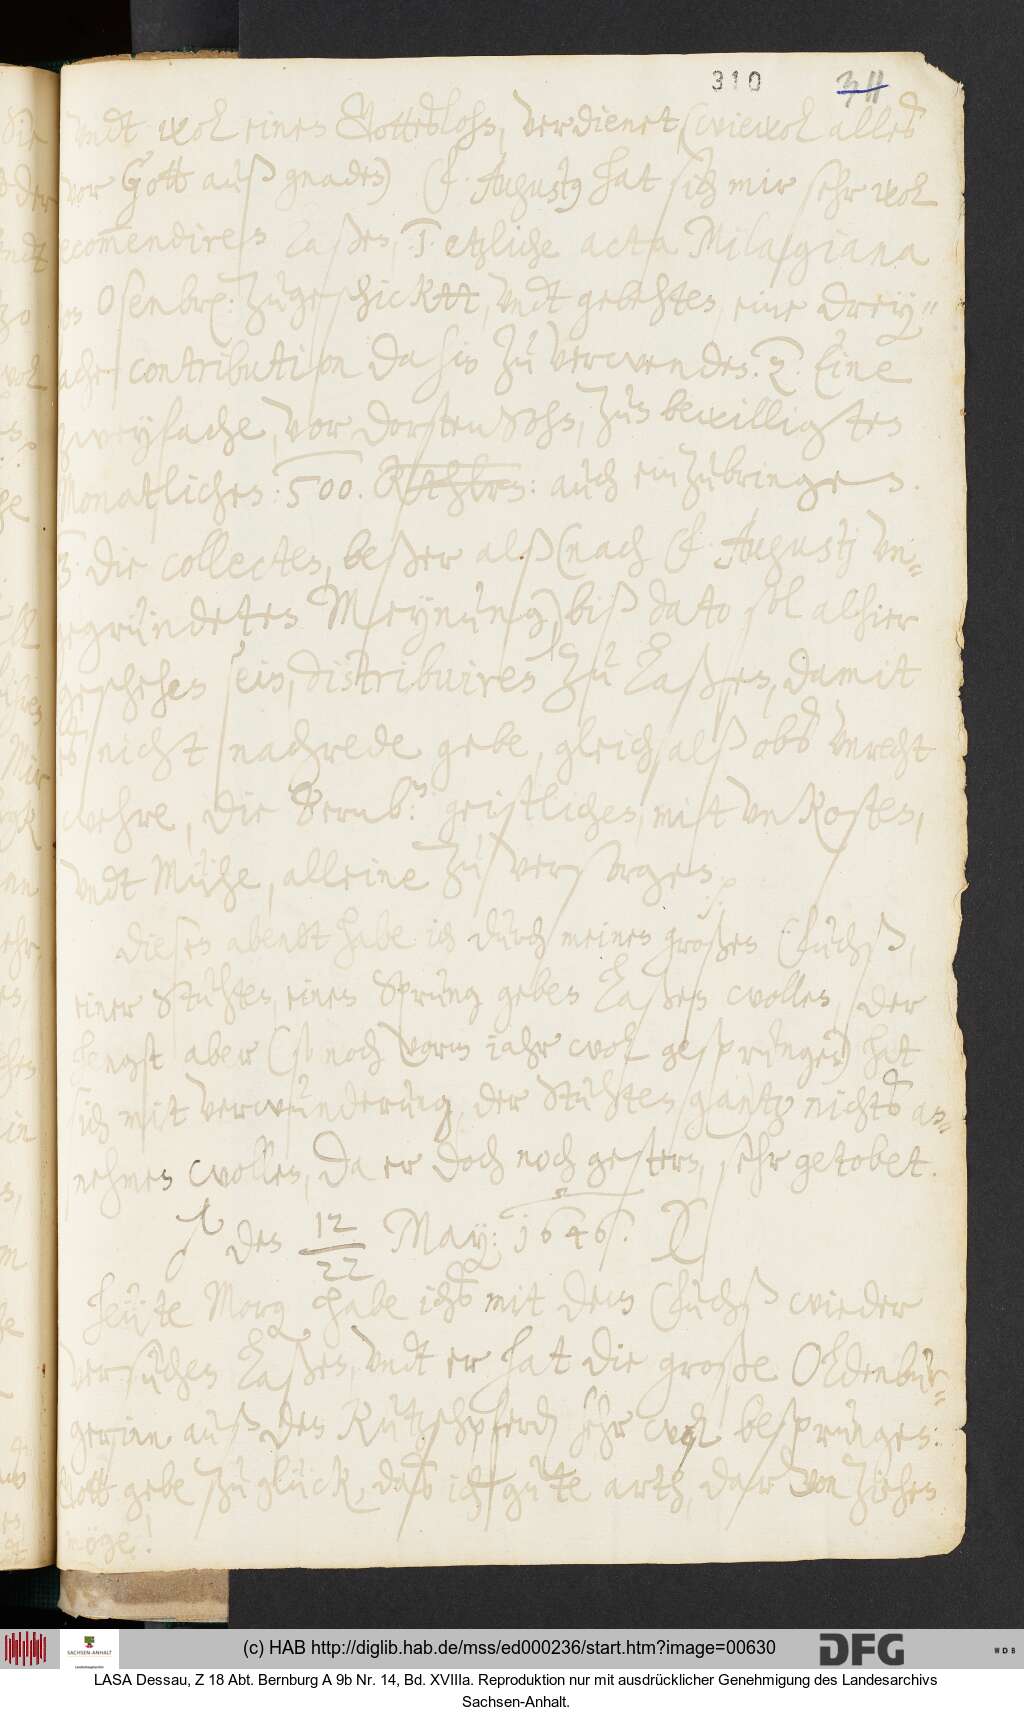 310 311
vndt wol eines Gotteslohns, verdienet, (wiewol alles
vor Gott auß gnaden) F. Augustg hat sich mir sehr wol
recommendiren laßen, 1. etzliche acta Milagiana
von Osenbrg: zugeschicktt, vndt gebehten, eine drey"
fache contribution dahin zu verwenden. 2. Eine
zweyfache, vor dorsten Sohn, zum bewilligten
Monatlichen: 500. Rthlrn: auch einzubringen.
3. die collecten, beßer alß (nach F. Augustj vn-
gegründeten Meynung) biß dato sol alhier
geschehen sein, distribuiren zu laßen, damit
es nicht nachrede gebe, gleich alß obs vnrecht
wehre, die Bernb: geistlichen, mitt vnkosten,
vndt Mühe, alleine zu versorgen.
Diesen abendt habe ich durch meinen großen Fuchß,
einer Stuhten, einen Sprung geben laßen wollen, der
hengst aber (so noch vorm iahr wol gesprungen) hat
sich mit verwunderung, der Stuhten gantz nichts an-
nehmen wollen, da er doch noch gestern, sehr getobet.
den 12/22 May: 1646.
Heutte Morg habe ichs mit dem Fuchß wieder
versuchen laßen, vndt er hat die große Oldenbur-
gerinn auß den Kutzschpferdn sehr wol besprungen:
Gott gebe zu glück, daß ich gute arth, dar von ziehen
möge!
(c) HAB http://diglib.hab.de/mss/ed000236/start.htm?image=00630
SACHSEN-ANHALT
DFG
WDB
LASA Dessau, Z 18 Abt. Bernburg A 9b Nr. 14, Bd. XVIIIa. Reproduktion nur mit ausdrücklicher Genehmigung des Landesarchivs
Sachsen-Anhalt.